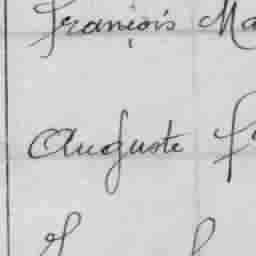 François Ma
Auguste f